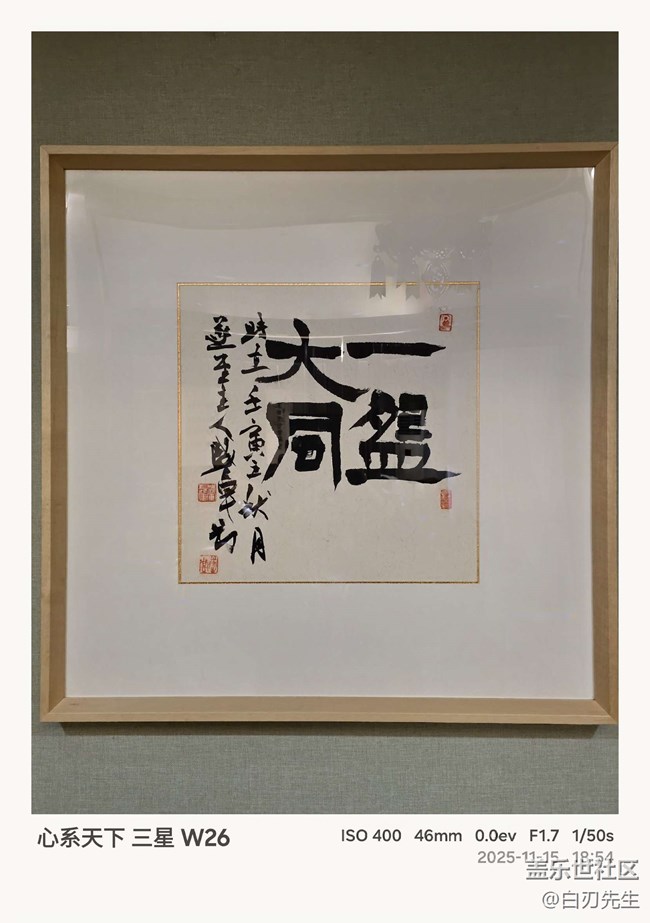 一盌
大同
時在壬寅秋月
主人
心系天下 三星 W26
ISO 400 46mm 0.0ev F1.7 1/50s
2025-11-15 18:54
盖乐世社区
@白刃先生